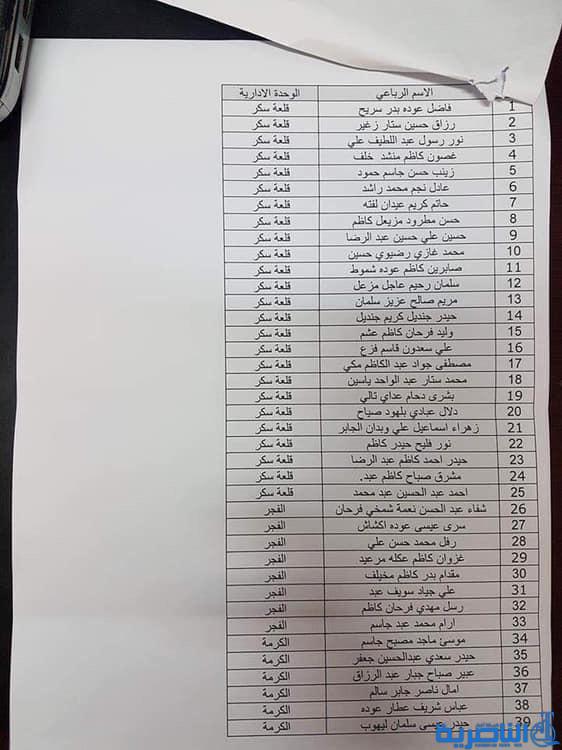 الاسم الرباعي الوحدة الادارية
1 فاضل عوده بدر سريح قلعة سكر
2 رزاق حسين ستار زغير قلعة سكر
3 نور رسول عبد اللطيف علي قلعة سكر
4 غصون كاظم منشد خلف قلعة سكر
5 زينب حسن جاسم حمود قلعة سكر
6 عادل نجم محمد راشد قلعة سكر
7 حاتم كريم عيدان لفته قلعة سكر
8 حسن مطرود مزيعل كاظم قلعة سكر
9 حسين علي حسين عبد الرضا قلعة سكر
10 محمد غازي رضيوي حسين قلعة سكر
11 صابرين كاظم عوده شموط قلعة سكر
12 سلمان رحيم عاجل مزعل قلعة سكر
13 مريم صالح عزيز سلمان قلعة سكر
14 حيدر جنديل كريم جنديل قلعة سكر
15 وليد فرحان كاظم عشم قلعة سكر
16 علي سعدون قاسم فزع قلعة سكر
17 مصطفى جواد عبد الكاظم مكي قلعة سكر
18 محمد ستار عبد الواحد ياسين قلعة سكر
19 بشرى دحام عداي تالي قلعة سكر
20 دلال عبادي بلهود صياح قلعة سكر
21 زهراء اسماعيل علي وبدان الجابر قلعة سكر
22 نور فليح حيدر كاظم قلعة سكر
23 حيدر احمد كاظم عبد الرضا قلعة سكر
24 مشرق صباح كاظم عبد. قلعة سكر
25 احمد عبد الحسين عبد محمد قلعة سكر
26 شفاء عبد الحسن نعمة شمخي فرحان الفجر
27 سرى عيسى عوده اكشاش الفجر
28 رفل محمد حسن علي الفجر
29 غزوان كاظم عكله مرعيد الفجر
30 مقدام بدر كاظم مخيلف الفجر
31 علي جياد سويف عبد الفجر
32 رسل مهدي فرحان كاظم الفجر
33 ارام محمد عبد جاسم الفجر
34 موسئ ماجد مصبح جاسم الكرمة
35 حيدر سعدي عبدالحسين جعفر الكرمة
36 عبير صباح جبار عبد الرزاق الكرمة
37 امال ناصر جابر سالم الكرمة
38 عباس شريف عطار عوده الكرمة
39 حيدر عيسى سلمان ليهوب الكرمة
الناصرية